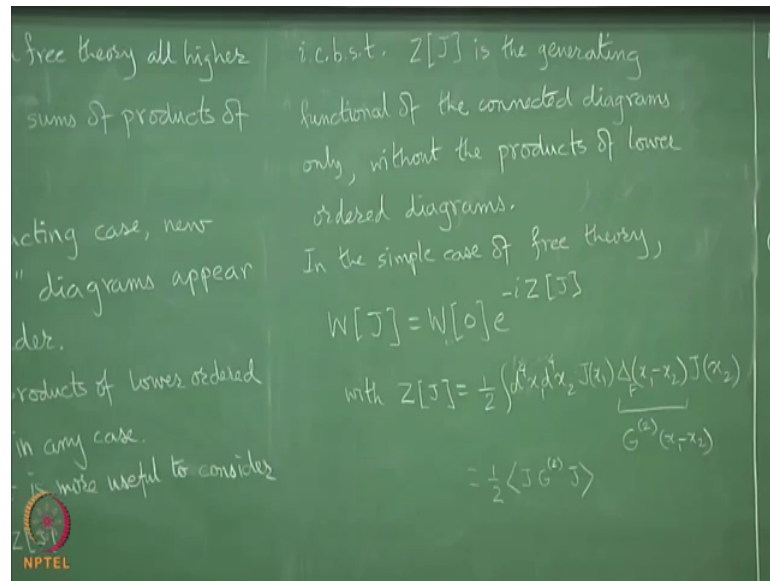 free theory all higher
sums of products of
cting case, new
" diagrams appear
der.
roducts of lower ordered
in any case.
is more useful to consider
Z[J]
i.c.b.s.t. Z[J] is the generating
functional of the connected diagrams
only, without the products of lower
ordered diagrams.
In the simple case of free theory,
W[J] = W[0] e^{-iZ[J]}
with Z[J] = 1/2 ∫d⁴x₁d⁴x₂ J(x₁) Δ_F(x₁-x₂) J(x₂)
G^{(2)}(x₁-x₂)
= 1/2 ⟨J G^{(2)} J⟩
NPTEL